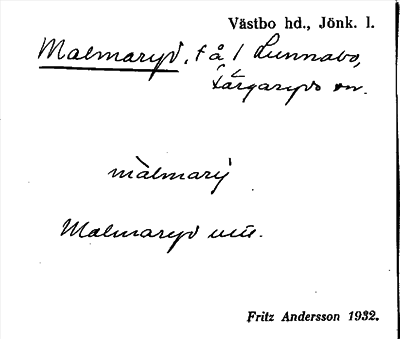 Västbo hd., Jönk. l.
Malmaryd, få / Lunnabo,
Färgaryds sn.
màlmarÿ
Malmaryd
Fritz Andersson 1932.